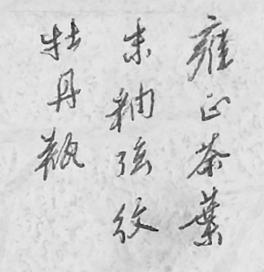 雍正茶葉
末釉弦紋
牡丹瓶